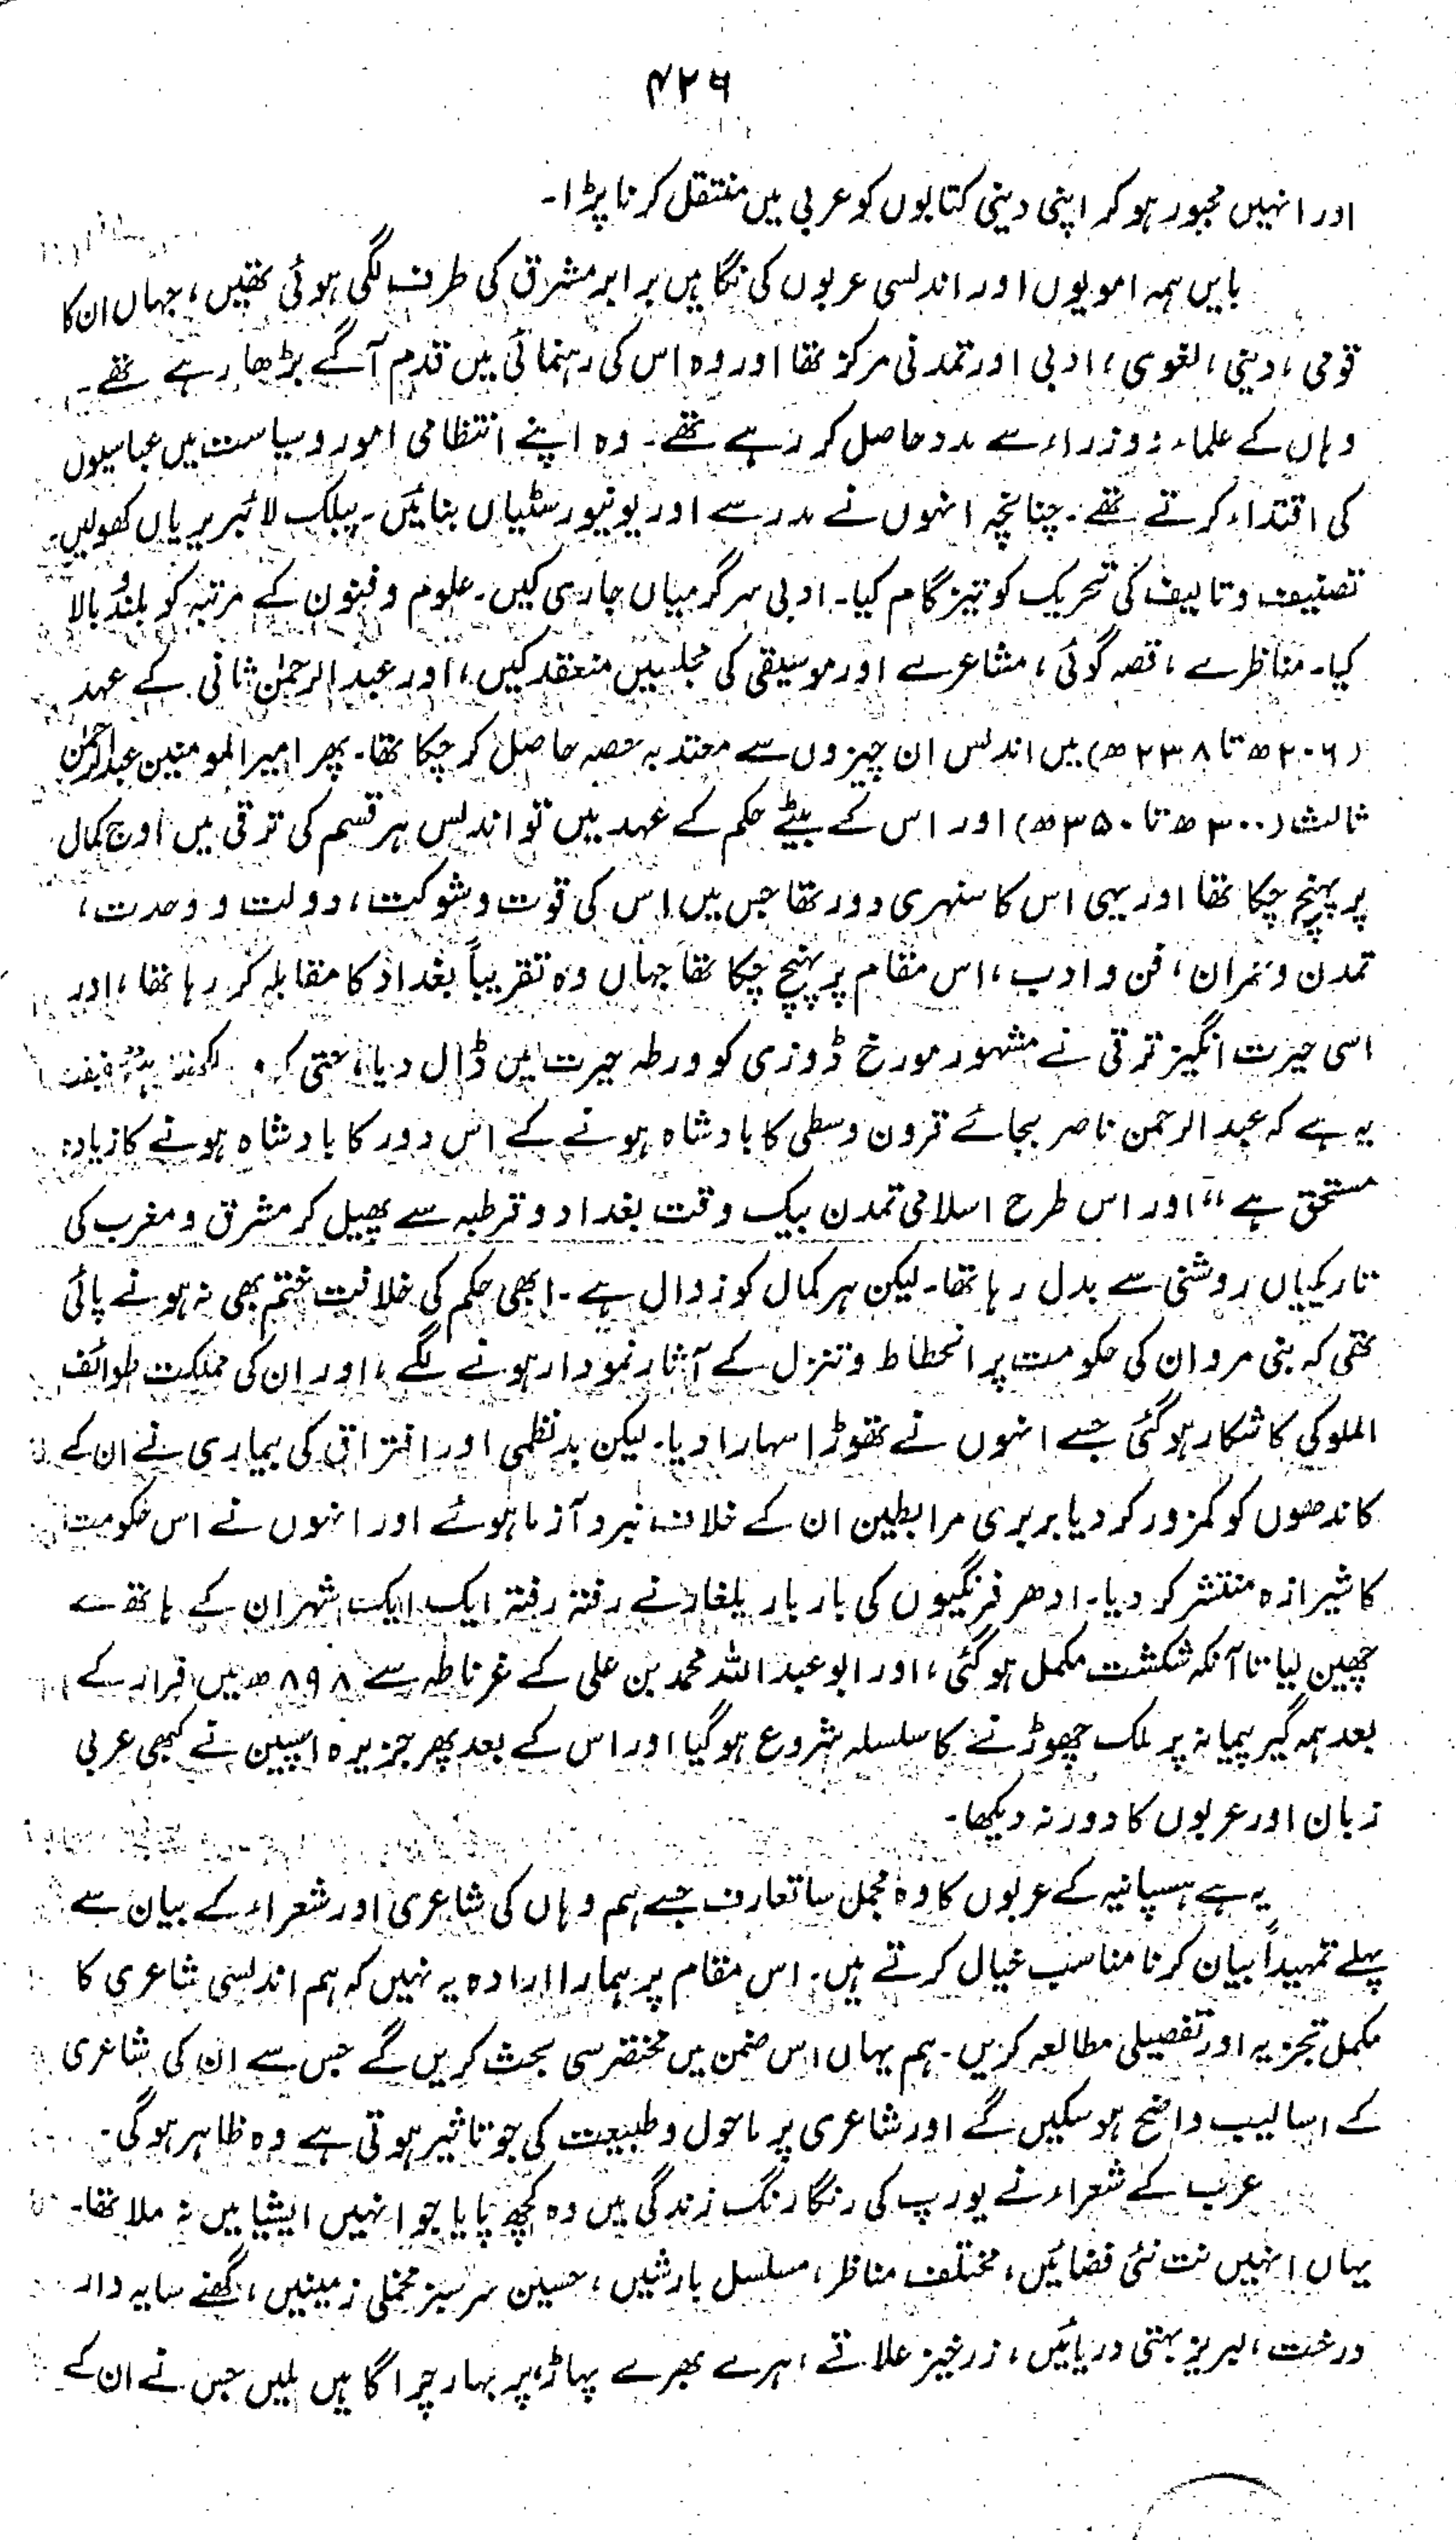 ۴۲۶
اور انہیں مجبور ہو کر اپنی دینی کتابوں کو عربی میں منتقل کرنا پڑا۔
بایں ہمہ امویوں اور اندلسی عربوں کی نگاہیں برابر مشرق کی طرف لگی ہوئی تھیں، جہاں ان کا
قومی، دینی، لغوی، ادبی اور تمدنی مرکز تھا اور وہ اس کی رہنمائی میں قدم آگے بڑھا رہے تھے۔
وہاں کے علماء و وزراء سے مدد حاصل کر رہے تھے۔ وہ اپنے انتظامی امور و سیاست میں عباسیوں
کی اقتداء کرتے تھے۔ چنانچہ انہوں نے مدرسے اور یونیورسٹیاں بنائیں۔ پبلک لائبریریاں کھولیں۔
تصنیف و تالیف کی تحریک کو تیز گام کیا۔ ادبی سرگرمیاں جاری کیں۔ علوم و فنون کے مرتبہ کو بلند و بالا
کیا۔ مناظرے، قصہ گوئی، مشاعرے اور موسیقی کی مجلسیں منعقد کیں، اور عبد الرحمٰن ثانی کے عہد
(۲۰۶ھ تا ۲۳۸ھ) میں اندلس ان چیزوں سے معتد بہ حصہ حاصل کر چکا تھا۔ پھر امیر المومنین عبد الرحمٰن
ثالث (۳۰۰ھ تا ۳۵۰ھ) اور اس کے بیٹے حکم کے عہد میں تو اندلس ہر قسم کی ترقی میں اوج کمال
پر پہنچ چکا تھا اور یہی اس کا سنہری دور تھا جس میں اس کی قوت و شوکت، دولت و وحدت،
تمدن و عمران، فن و ادب، اس مقام پر پہنچ چکا تھا جہاں وہ تقریباً بغداد کا مقابلہ کر رہا تھا، اور
اسی حیرت انگیز ترقی نے مشہور مورخ ڈوزی کو ورطہ حیرت میں ڈال دیا، حتی کہ
یہ ہے کہ عبد الرحمن ناصر بجائے قرون وسطی کا بادشاہ ہونے کے اس دور کا بادشاہ ہونے کا زیادہ
مستحق ہے“ اور اس طرح اسلامی تمدن بیک وقت بغداد و قرطبہ سے پھیل کر مشرق و مغرب کی
تاریکیاں روشنی سے بدل رہا تھا۔ لیکن ہر کمال کو زوال ہے۔ ابھی حکم کی خلافت ختم بھی نہ ہونے پائی
تھی کہ بنی مروان کی حکومت پر انحطاط و تنزل کے آثار نمودار ہونے لگے، اور ان کی مملکت طوائف
الملوکی کا شکار ہو گئی جسے انہوں نے تھوڑا سہارا دیا۔ لیکن بدنظمی اور افتراق کی بیماری نے ان کے
کاندھوں کو کمزور کر دیا بربری مرابطین ان کے خلاف نبرد آزما ہوئے اور انہوں نے اس حکومت
کا شیرازہ منتشر کر دیا۔ ادھر فرنگیوں کی بار بار یلغار نے رفتہ رفتہ ایک ایک شہر ان کے ہاتھ سے
چھین لیا تا آنکہ شکست مکمل ہو گئی، اور ابو عبد اللہ محمد بن علی کے غرناطہ سے ۸۹۸ھ میں فرار کے
بعد ہمہ گیر پیمانہ پر ملک چھوڑنے کا سلسلہ شروع ہو گیا اور اس کے بعد پھر جزیرہ اسپین نے کبھی عربی
زبان اور عربوں کا دور نہ دیکھا۔
یہ ہے ہسپانیہ کے عربوں کا وہ مجمل سا تعارف جسے ہم وہاں کی شاعری اور شعراء کے بیان سے
پہلے تمہیداً بیان کرنا مناسب خیال کرتے ہیں۔ اس مقام پر ہمارا ارادہ یہ نہیں کہ ہم اندلسی شاعری کا
مکمل تجزیہ اور تفصیلی مطالعہ کریں۔ ہم یہاں اس ضمن میں مختصر سی بحث کریں گے جس سے ان کی شاعری
کے اسالیب واضح ہو سکیں گے اور شاعری پر ماحول و طبیعت کی جو تاثیر ہوتی ہے وہ ظاہر ہو گی۔
عرب کے شعراء نے یورپ کی رنگا رنگ زندگی میں وہ کچھ پایا جو انہیں ایشیا میں نہ ملا تھا۔
یہاں انہیں نت نئی فضائیں، مختلف مناظر، مسلسل بارشیں، حسین سرسبز مخملی زمینیں، گھنے سایہ دار
درخت، لبریز بہتی دریائیں، زرخیز علاقے، ہرے بھرے پہاڑ، پر بہار چراگاہیں ملیں جس نے ان کے